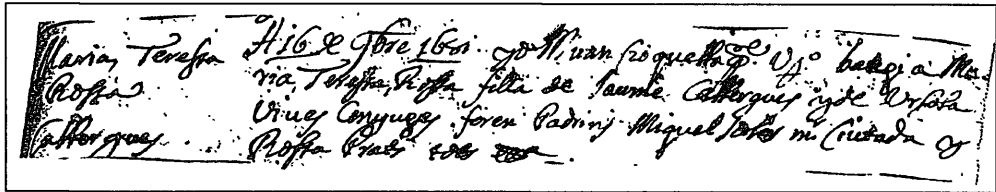 Maria, Teressa
Rossa
Catterques
A 16 de 9bre 1601 yo M. Juan Croquella bategi a Ma-
ria, Teressa, Rossa filla de Jaume Catterques y de Ursola
Vives Conyuges foren Padrins Miquel mi Ciutada y
Rossa Prats